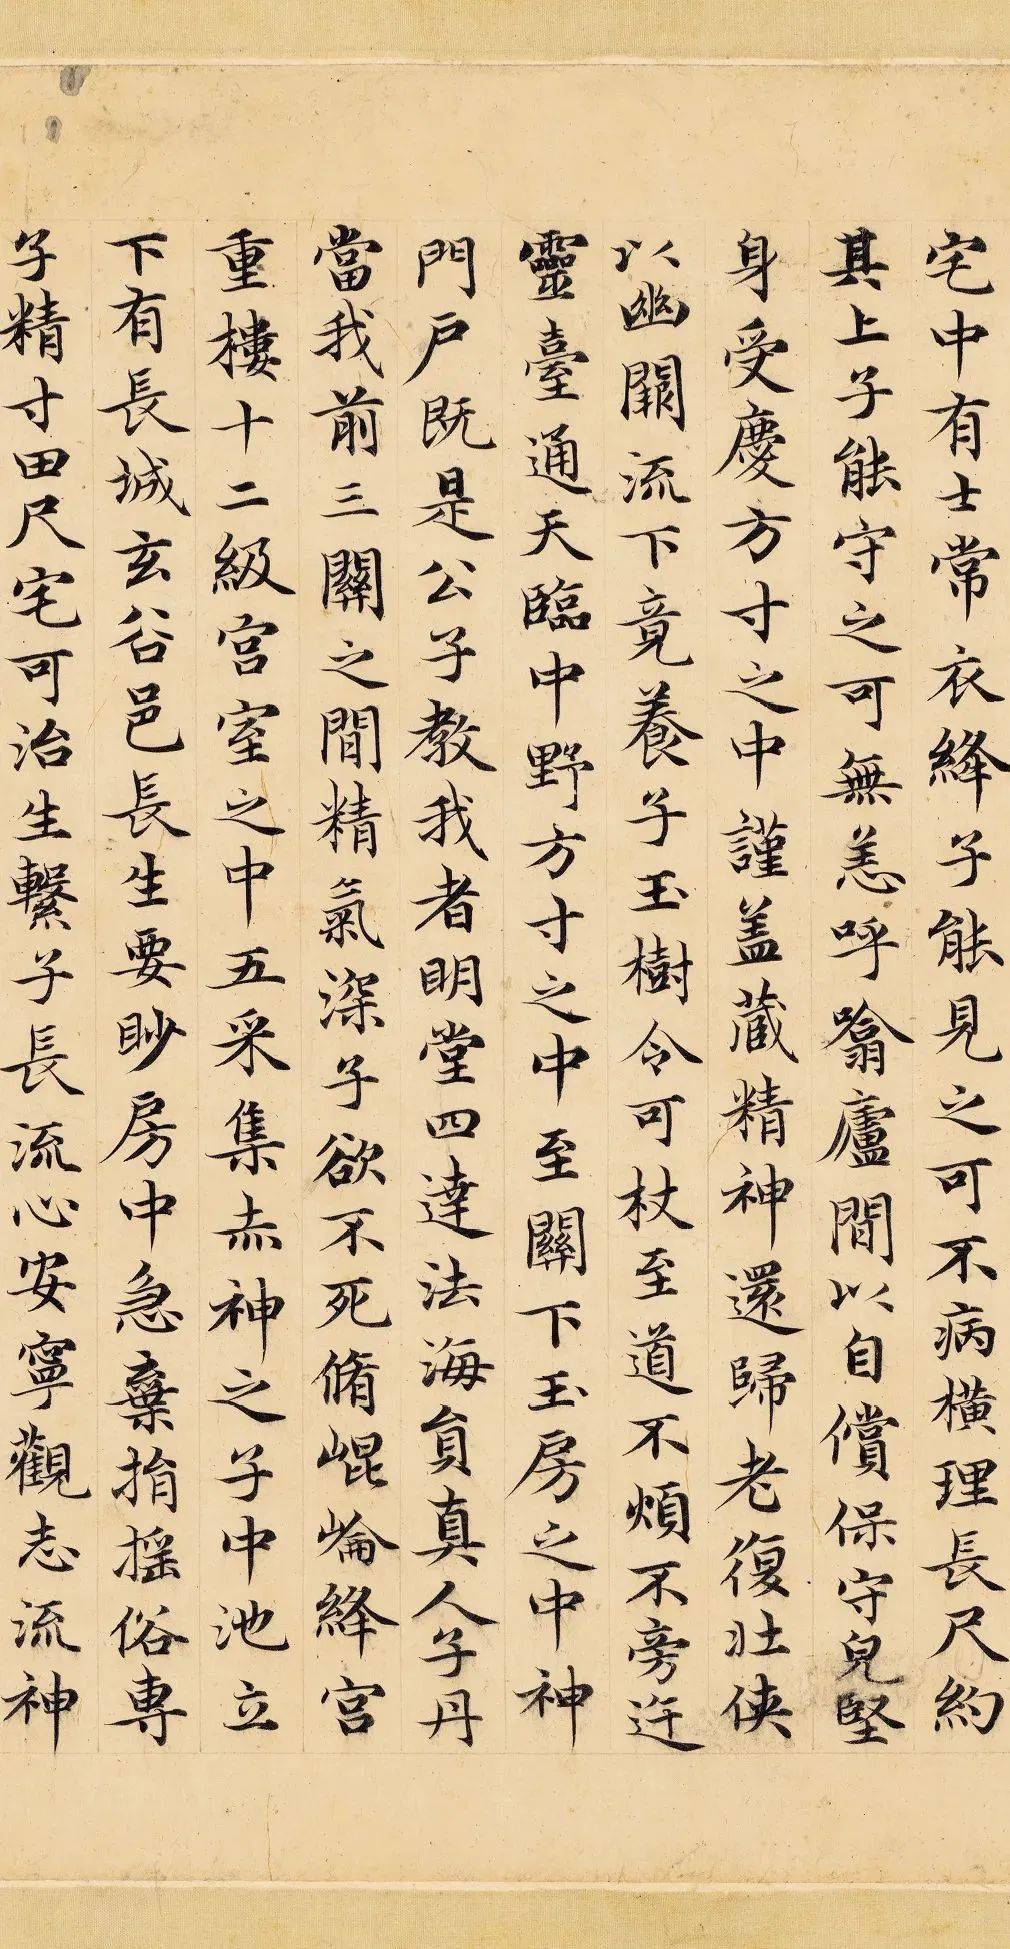 宅中有士常衣絳子能見之可不病橫理長尺約
其上子能守之可無恙呼噏廬間以自償保守皃堅
身受慶方寸之中謹盖藏精神還歸老復壯俠
以幽闕流下竟養子玉樹令可杖至道不煩不旁迕
靈臺通天臨中野方寸之中至關下玉房之中神
門户既是公子教我者明堂四達法海負真人子丹
當我前三關之間精氣深子欲不死脩崐崘絳宮
重樓十二級宮室之中五采集赤神之子中池立
下有長城玄谷邑長生要眇房中急棄捐搖俗専
子精寸田尺宅可治生繫子長流心安寧觀志流神